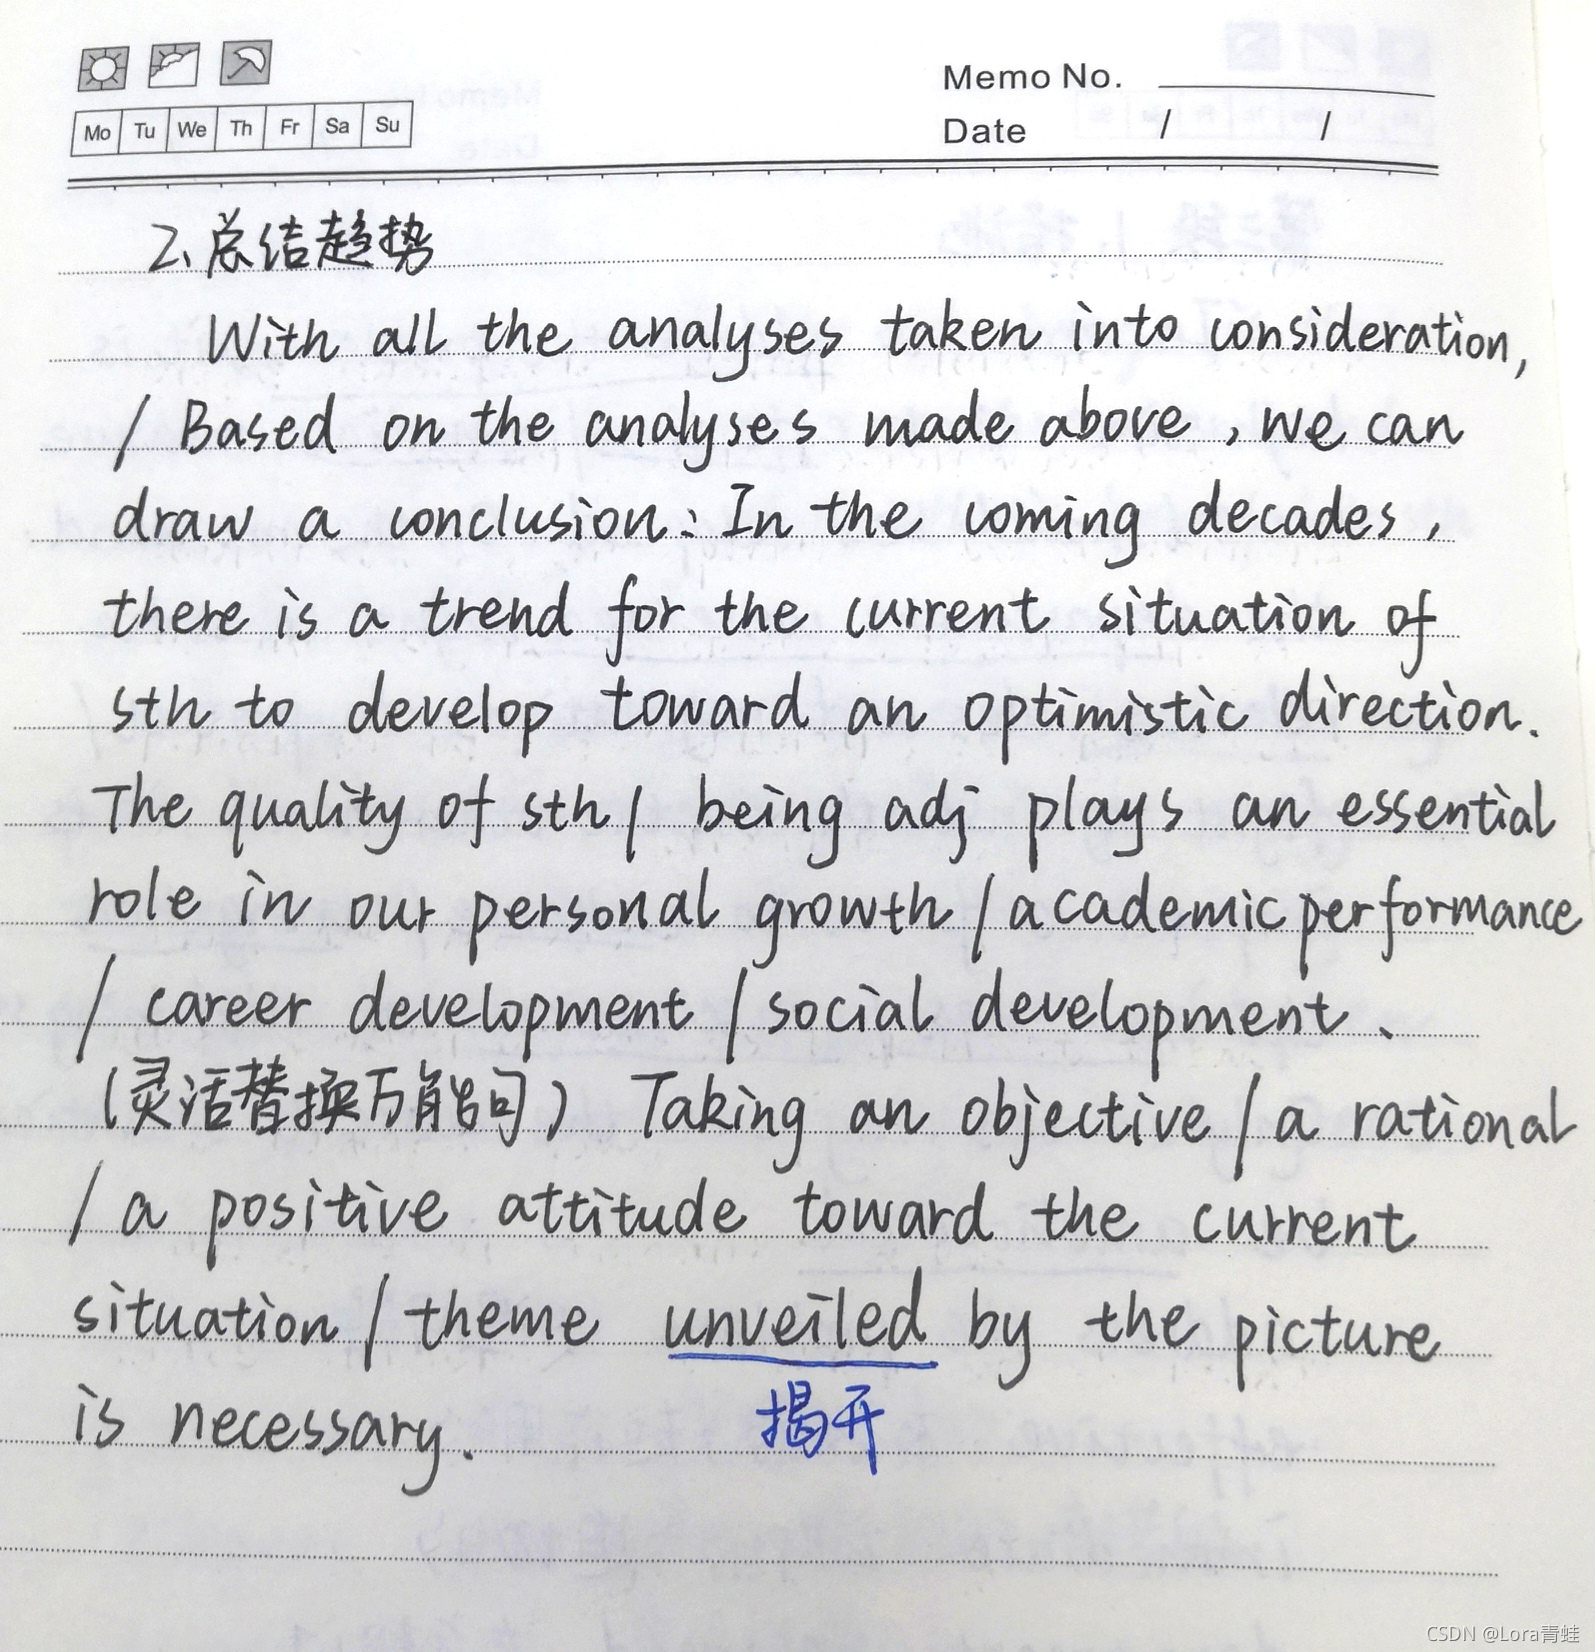 Memo No.
Mo Tu We Th Fr Sa Su
Date / /
2、总结趋势
With all the analyses taken into consideration,
/ Based on the analyses made above, we can
draw a conclusion: In the coming decades,
there is a trend for the current situation of
sth to develop toward an optimistic direction.
The quality of sth / being adj plays an essential
role in our personal growth / academic performance
/ career development / social development、
(灵活替换万能句) Taking an objective / a rational
/ a positive attitude toward the current
situation / theme unveiled by the picture
is necessary.
揭开
CSDN @Lora青蛙